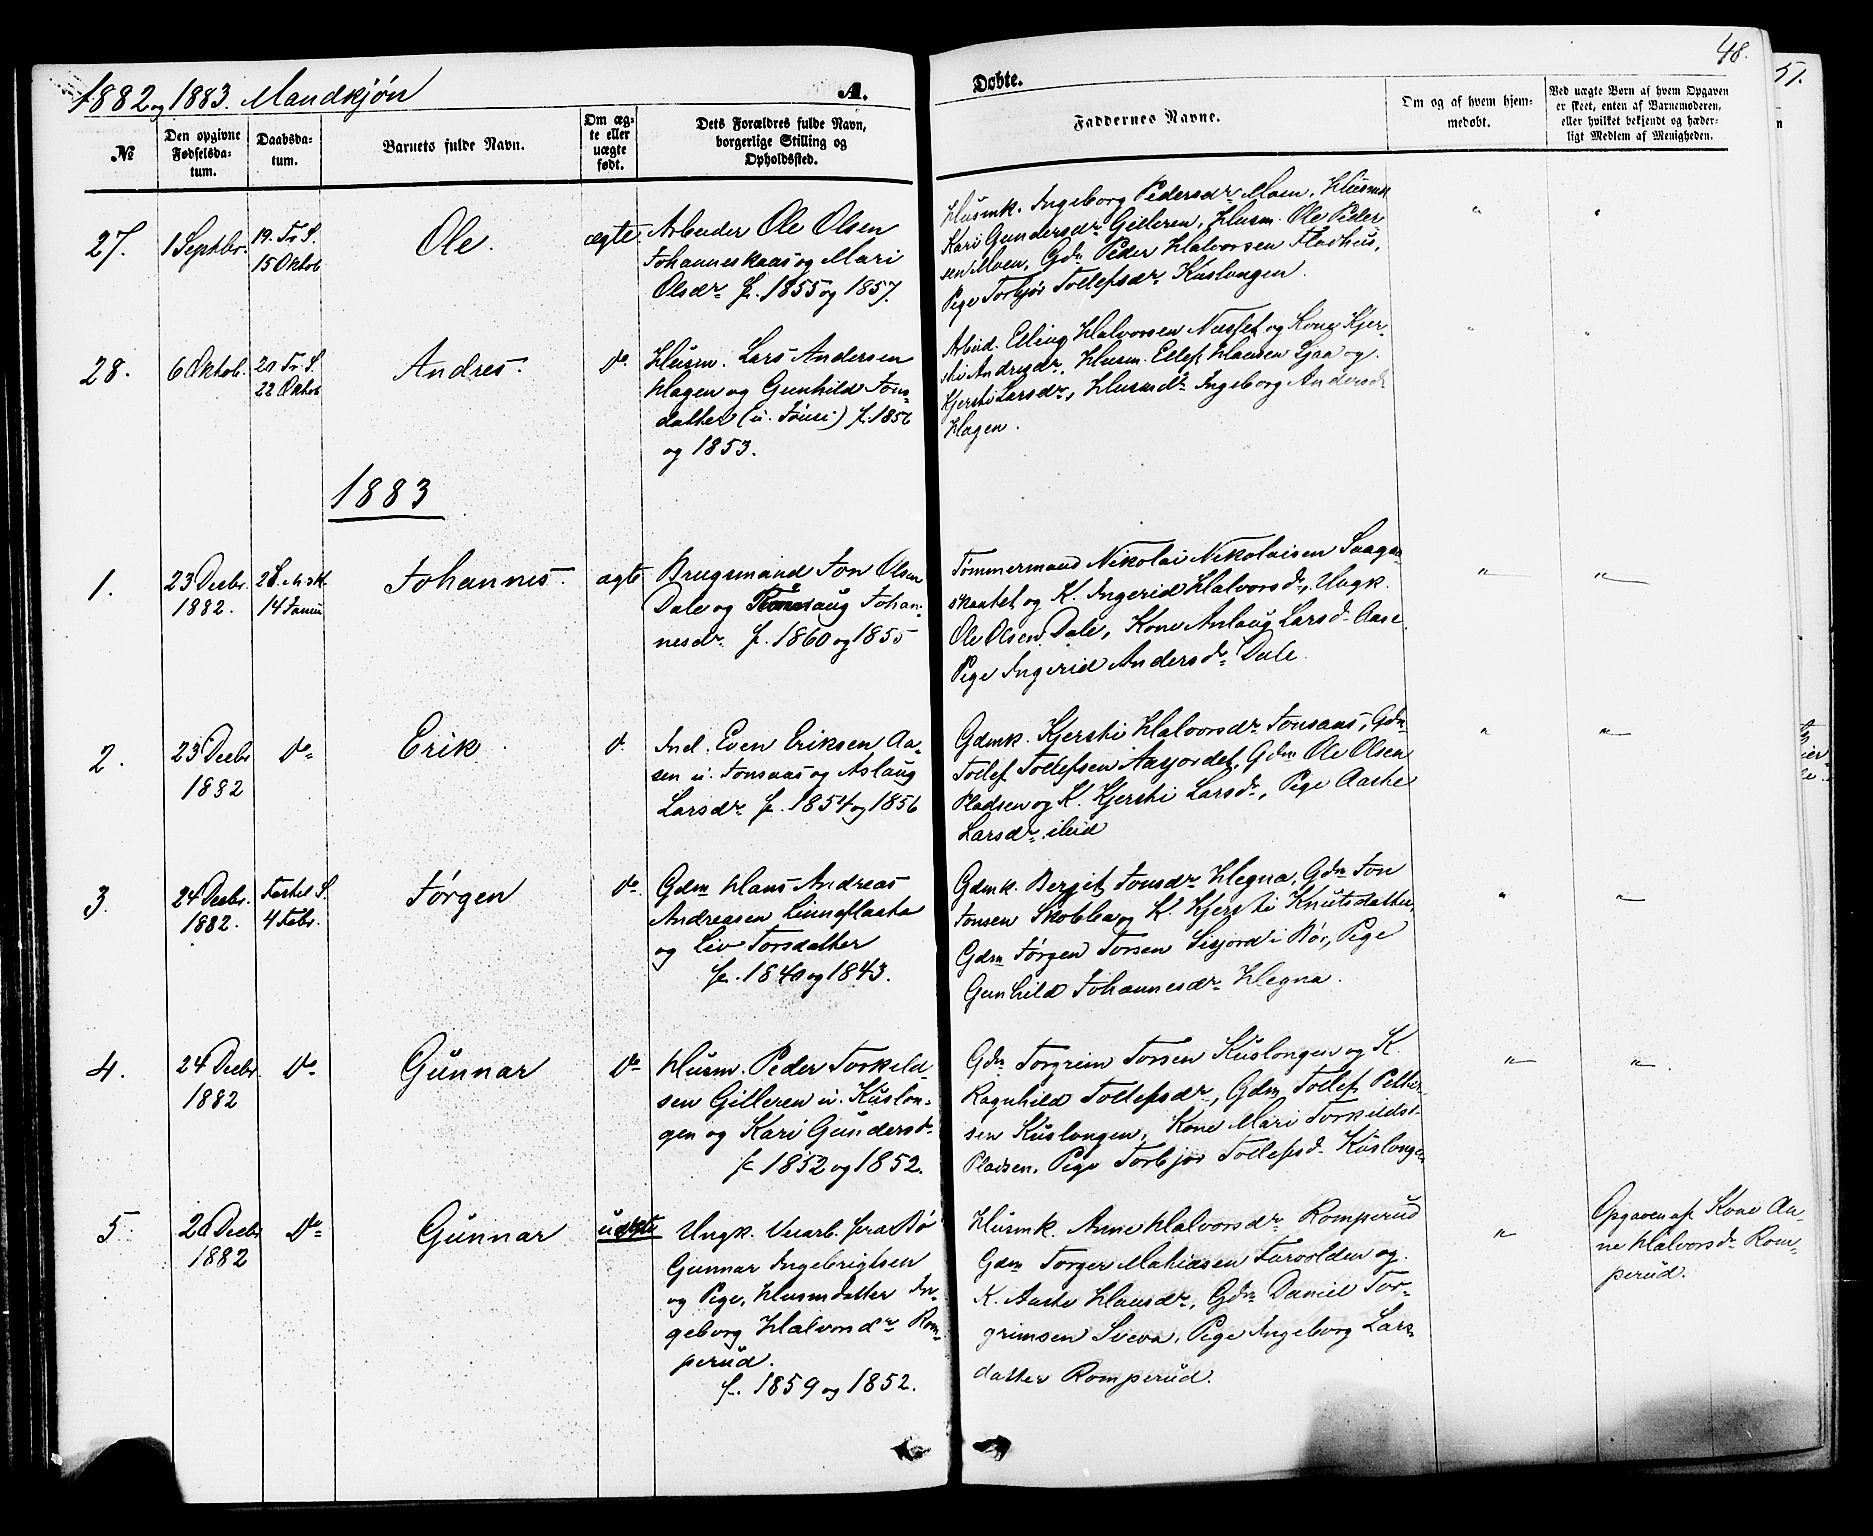 48.
51.
1882 og 1883. Mandkjøn
A.
Døbte.
№
Den opgivne Fødselsdatum.
Daabsdatum.
Barnets fulde Navn.
Om ægte eller uægte født.
Dets Forældres fulde Navn, borgerlige Stilling og Opholdssted.
Faddernes Navne.
Om og af hvem hjemmedøbt.
Ved uægte Børn af hvem Opgaven er skeet, enten af Barnemoderen, eller hvilket bekjendt og hæderligt Medlem af Menigheden.
27.
1 Septbr.
19. Tr. S.
15 Oktob
Ole.
ægte.
Arbeider Ole Olsen
Johanneskaas og Mari
Olsdr. f. 1855 og 1857.
Husmk. Ingeborg Pedersdr Moen, Husmk
Kari Gundersdr Gilleren, Husm. Ole Peder
sen Moen, Gdm Peder Halvorsen Flashus,
Pige Torbjør Tollefsdr Kuslongen.
"
"
28.
6 Oktob.
20 Tr. S.
22 Oktob
Andres.
do
Husm. Lars Andersen
Hagen og Gunhild Jons-
datter (u. Jønsi) f. 1856
og 1853.
Arbeid. Elling Halvorsen Næsset og Kone Kjer-
sti Andrsdr, Husm. Ellef Hansen Ljaa og
Kjersti Larsdr, Husmdr Ingeborg Andersd.
Hagen.
"
"
1883
1.
23 Decbr.
1882.
2 S. e. H. 3 K.
14 Januar
Johannes.
ægte
Brugsmand Jon Olsen
Dale og aug Johan-
nesdr. f. 1860 og 1855
Tømmermand Nikolai Nikolaisen Saaga-
skaatet og K. Ingerid Halvorsdr, Ungk.
Ole Olsen Dale, Kone Anlaug Larsd. Aase.
Pige Ingerid Andersdr Dale.
"
"
2.
23 Decbr
1882
do
Erik.
do
Ind. Even Eriksen Aa-
sen u. Jonsaas og Aslaug
Larsdr f. 1854 og 1856
Gdmk. Kjersti Halvorsdr Jonsaas, Gdm
Tollef Tollefsen Aasjordet, Gdm Ole Olsen
Pladsen og K. Kjersti Larsdr, Pige Aaste
Larsdr ibid
"
"
3.
24 Decbr.
1882.
Fastel. S.
4 Febr.
Jørgen
do
Gdm Hans Andreas
Andreasen Linneflaata
og Liv Torsdatter
f. 1840 og 1843.
Gdmk. Bergit Jonsdr Hegna, Gdm Jon
Jonsen Skoblea og K. Kjersti Knutsdatter,
Gdm Jørgen Torsen Lisjord i Bø, Pige
Gunhild Johannesdr Hegna.
"
"
4.
24 Decbr
1882
do
Gunnar
do
Husm. Peder Torkeld-
sen Gilleren u. Kuslon-
gen og Kari Gundersd.
f. 1852 og 1852.
Gdm Torgrim Torsen Kuslongen og K.
Ragnhild Tollefsdr, Gdm Tollef Petter-
sen Kuslongen, Kone Mari Torkildsd.
Pladsen, Pige Torbjør Tollefsd. Kuslongen
"
"
5.
26 Decbr
1882
do
Gunnar
uægte
Ungk. Veiarb. fra Bø
Gunnar Ingebrigtsen
og Pige, Husmdatter In-
geborg Halvorsdr Rom-
perud.
f. 1859 og 1852.
Husmk. Anne Halvorsdr Romperud
Gdm Torger Mathiasen Furvolden og
K. Aaste Hansdr, Gdm Daniel Tor-
grimsen Sveva, Pige Ingeborg Lars-
datter Romperud.
"
Opgaven af Kone An-
ne Halvorsdr Rom-
perud.